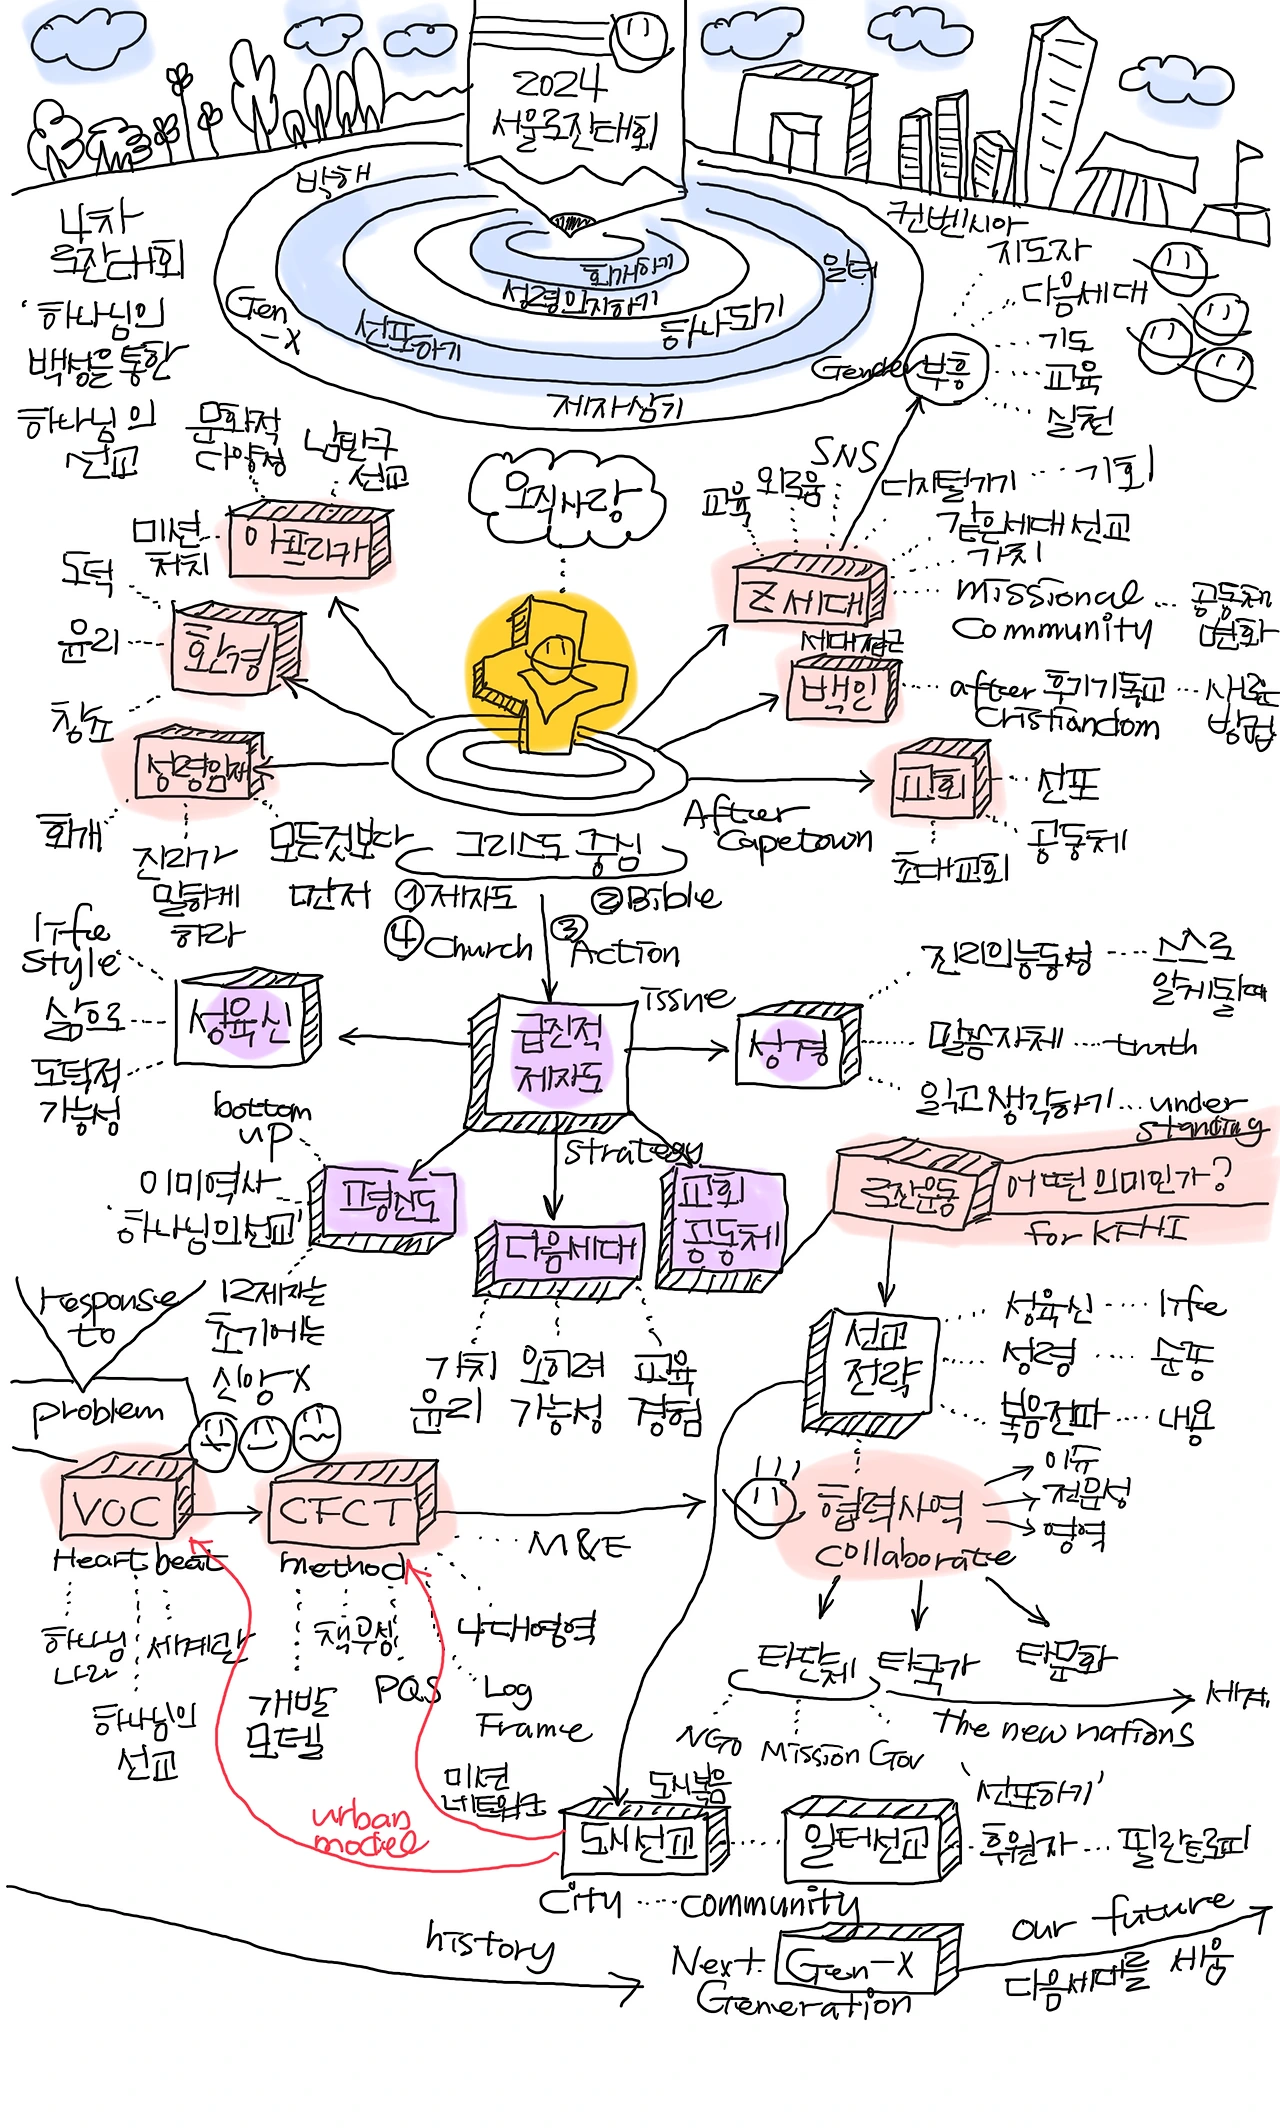 2024
서울로잔대회
박해
4차
로잔대회
'하나님의
백성을 통한
하나님의
선교
Gen
-X
회개하기
성령의지하기
하나되기
선포하기
일터
제자삼기
Gender
컨벤시아
지도자
다음세대
기도
교육
실천
부흥
문화적
다양성
남반구
선교
미션
처치
아프리카
오직사랑
SNS
교육
외로움
디지털기기
기회
같은세대 선교
가치
Z세대
missional
Community
공동체
변화
도덕
윤리
창조
환경
세대접근
백인
after 후기기독교
Cristiandom
새로운
방법
성령임재
회개
진리가
말하게
하라
모든것보다
먼저
그리스도 중심
After
Capetown
교회
선포
공동체
초대교회
① 제자도
② Bible
③
Action
④ Church
life
style
삶으로
도덕적
가능성
성육신
급진적
제자도
issue
성경
진리의능동성
스스로
알게될때
말씀자체
truth
읽고생각하기
under
standing
bottom
up
strategy
평신도
이미역사
'하나님의선교'
12제자는
초기에는
신앙-X
다음세대
가치
윤리
오히려
가능성
교육
경험
교회
공동체
로잔운동
어떤의미인가?
for KFHI
선교
전략
성육신
life
성령
순풍
복음전파
내용
response
to
problem
VOC
Heart beat
하나님
나라
세계관
하나님의
선교
CFCT
method
개발
모델
책무성
PQS
M&E
4대영역
Log
Frame
협력사역
Collaborate
이슈
전문성
영역
타단체
타국가
타문화
NGO
Mission
Gov
The new nations
세계
'선포하기'
미션
네트워크
urban
model
도시복음
도시선교
일터선교
후원자
필란트로피
City
community
history
Next
Generation
Gen-X
our future
다음세대를 세움